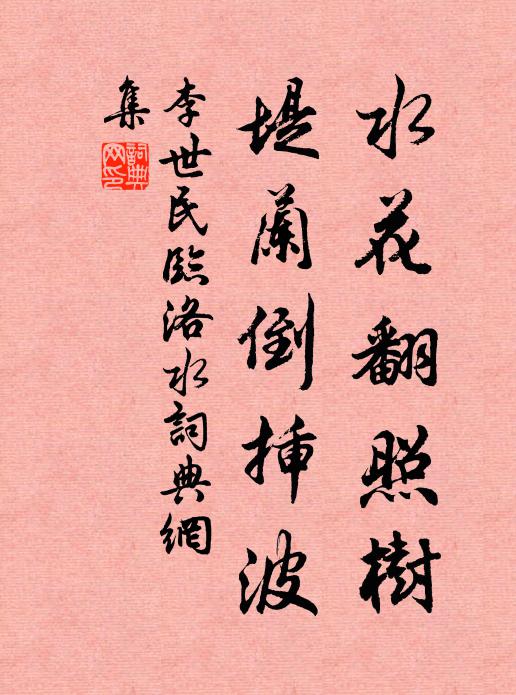 水花翻照樹
堤蘭倒挿波
李世民臨洛水詞典網
集
詞典網印